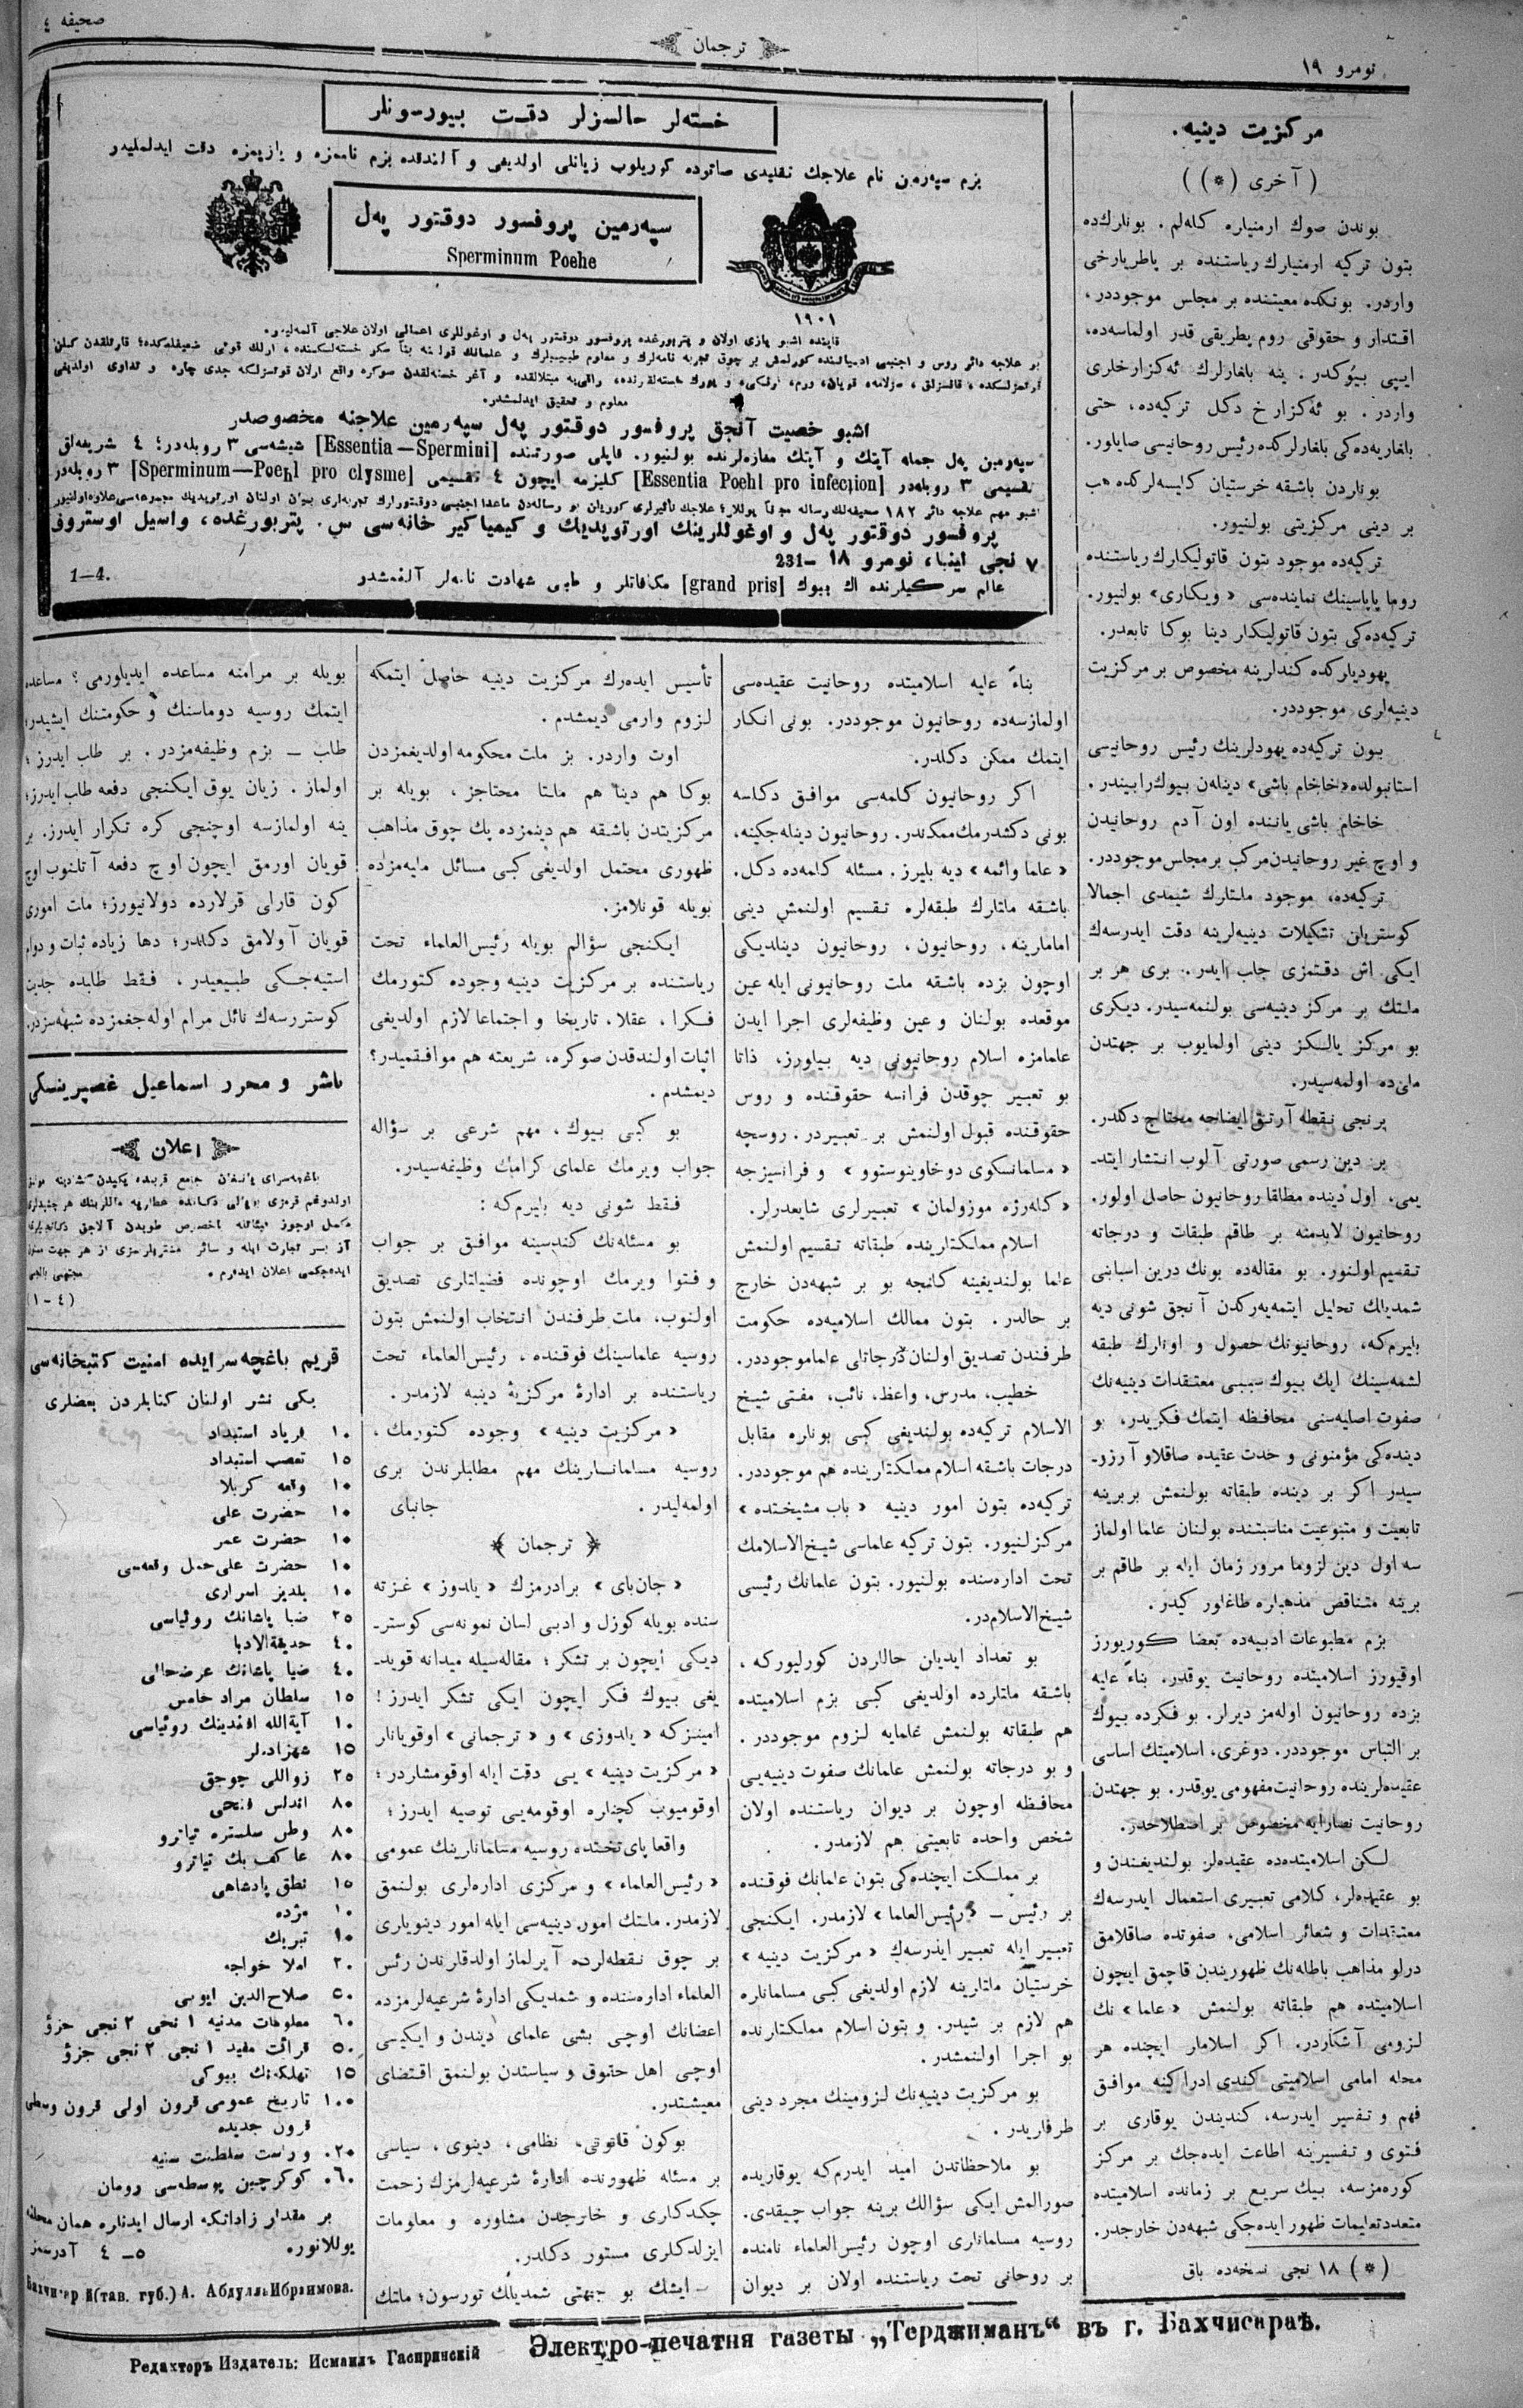 نومرو ١٩
ترجمان
صحیفه ٤
مرکزیت دینیه.
( آخری (*) )
بوندن صوك ارمنیلره کله‌لم. بونلرك‌ده
بتون ترکیه ارمنیلرك ریاستنده بر پاطریارخی
واردر. بونکده معیتنده بر مجلس موجوددر،
اقتدار و حقوقی روم پطریقی قدر اولماسه‌ده،
ایپی بیوکدر. ینه بلغارلرك ئەگزارخلری
واردر. بو ئەگزارخ دکل ترکیه‌ده، حتی
بلغاریه‌ده‌کی بلغارلرکده رئیس روحانیسی صایلور.
بونلردن باشقه خرستیان کلیسه‌لرکده هب
بر دینی مرکزیتی بولنیور.
ترکیه‌ده موجود بتون قاتولیکلرك ریاستنده
روما پاپاسینك نماینده‌سی «ویکاری» بولنیور.
ترکیه‌ده‌کی بتون قاتولیکلر دینا بوکا تابعدر.
یهودیلرکده کندلرینه مخصوص بر مرکزیت
دینیه‌لری موجوددر.
بتون ترکیه‌ده یهودلرینك رئیس روحانیسی
استانبولده «خاخام باشی» دینلەن بیوك رابیندر.
خاخام باشی یاننده اون آدم روحانیدن
و اوچ غیر روحانیدن مرکب بر مجلس موجوددر.
ترکیه‌ده، موجود ملتلرك شیمدی اجمالا
کوستریلن تشکیلات دینیه‌لرینه دقت ایدرسه‌ك
ایکی اش دقتمزی جلب ایدر. بری هر بر
ملتك بر مرکز دینیه‌سی بولنمه‌سیدر. دیکری
بو مرکز یالکز دینی اولمایوب بر جهتدن
ملی‌ده اولمه‌سیدر.
برنجی نقطه آرتق ایضاحه محتاج دکلدر.
بر دین رسمی صورتی آلوب انتشار ایتد-
یمی، اول دینده مطلقا روحانیون حاصل اولور.
روحانیون لابدمنه بر طاقم طبقات و درجاته
تقسیم اولنور. بو مقاله‌ده بونك درین اسبابنی
شمدیلك تحلیل ایتمه‌یه‌رکدن آنجق شونی دیه
بلیرم‌که، روحانیونك حصول و اونلرك طبقه
لشمه‌سینك ایك بیوك سببی معتقدات دینیه‌نك
صفوت اصلیه‌سنی محافظه ایتمك فکریدر، بو
دینده‌کی مؤمنونی و حدت عقیده صاقلاو آرزو-
سیدر اکر بر دینده طبقاته بولنمش بربرینه
تابعیت و متبوعیت مناسبتنده بولنان علما اولماز
سه اول دین لزوما مرور زمان ایله بر طاقم بر
برینه متناقض مذهبلره طاغلور کیدر.
بزم مطبوعات ادبیه‌ده بعضا کوریورز
اوقیورز اسلامیتده روحانیت یوقدر. بناءً علیه
بزده روحانیون اوله‌مز دیرلر. بو فکرده بیوك
بر التباس موجوددر. دوغری، اسلامیتك اساسی
عقیده‌لرینده روحانیت مفهومی یوقدر. بو جهتدن
روحانیت نصارایه مخصوص بر اصطلاحدر.
لکن اسلامیتده‌ده عقیده‌لر بولندیغندن و
بو عقیده‌لر، کلامی تعبیری استعمال ایدرسه‌ك
معتقدات و شعائر اسلامی، صفوتده صاقلامق
درلو مذاهب باطله‌نك ظهوریندن قاچمق ایچون
اسلامیتده هم طبقاته بولنمش «علما» نك
لزومی آشکاردر. اکر اسلاملر ایچنده هر
محله امامی اسلامیتی کندی ادراکینه موافق
فهم و تفسیر ایدرسه، کندیندن یوقاری بر
فتوی و تفسیرینه اطاعت ایده‌جك بر مرکز
کوره‌مزسه، بیك سریع بر زمانده اسلامیتده
متعدد تعلیمات ظهور ایده‌جکی شبهه‌دن خارجدر.
(*) ١٨ نجی نسخه‌ده باق
خسته‌لر حالسزلر دقت بیورسونلر
بزم سپه‌رمین نام علاجك تقلیدی صاتوده کوریلوب زیانلی اولدیغی و آلندقده بزم نامه‌زه و یازیمزه دقت ایدلملیدر
سپه‌رمین پروفسور دوقتور پەل
Sperminum Poehe
١٩٠١
قاپنده اشبو یازی اولان و پتربورغده پروفسور دوقتور پەل و اوغوللری اعمالی اولان علاجی آلمه‌لیدر.
بو علاجه دائر روس و اجنبی ادبیاتنده کورلمش بر چوق تجربه نامه‌لرك و معلوم طبیبلرك و علمانك قولنه بناً
معلوم و تحقیق ایدلمشدر.
اشبو خصیت آنجق پروفسور دوقتور پەل سپه‌رمین علاجنه مخصوصدر
سپه‌رمین پەل جمله آپتك و آپتك مغازه‌لرنده بولنیور. قاپلی صورتنده [Essentia—Spermini] شیشه‌سی ٣ روبله‌در؛ ٤ شریفه‌لق
تقسیمی ٣ روبله‌در [Essentia Poehl pro infection] کلیزمه ایچون ٤ تقسیمی [Sperminum—Poehl pro clysme] ٣ روبله‌در
پروفسور دوقتور پەل و اوغوللرینك اورتوپدیك و کیمیاکیر خانه‌سی س. پتربورغده، واسیل اوستروف
٧ نجی لینیا، نومرو ١٨ –231
عالم سرکیلرنده اك بیوك [grand pris] مکافاتلر و طبی شهادت نامه‌لر آلنمشدر
1—4.
بناءً علیه اسلامیتده روحانیت عقیده‌سی
اولمازسه‌ده روحانیون موجوددر. بونی انکار
ایتمك ممکن دکلدر.
اکر روحانیون کلمه‌سی موافق دکلسه
بونی دکشدرمك ممکندر. روحانیون دینله‌جکینه،
«علما وائمه» دیه بلیرز. مسئله کلمه‌ده دکل.
باشقه ملتلرك طبقه‌لره تقسیم اولنمش دینی
اماملرینه، روحانیون، روحانیون دینلدیکی
اوچون بزده باشقه ملت روحانیونی ایله عین
موقعده بولنان و عین وظیفه‌لری اجرا ایدن
علمامزه اسلام روحانیونی دیه بیلورز، ذاتا
بو تعبیر چوقدن فرانسه حقوقنده و روس
حقوقنده قبول اولنمش بر تعبیردر. روسچه
«مسلمانسکوی دوخاوینوستوو» و فرانسیزجه
«کله‌رژه موزولمان» تعبیرلری شایعدرلر.
اسلام مملکتلرینده طبقاته تقسیم اولنمش
علما بولندیغینه کلنجه بو بر شبهه‌دن خارج
بر حالدر. بتون ممالك اسلامیه‌ده حکومت
طرفندن تصدیق اولنان درجاتلی علما موجوددر.
خطیب، مدرس، واعظ، نائب، مفتی شیخ
الاسلام ترکیه‌ده بولندیغی کبی بونلره مقابل
درجات باشقه اسلام مملکتلرینده هم موجوددر.
ترکیه‌ده بتون امور دینیه «باب مشیختده»
مرکزلنیور. بتون ترکیه علماسی شیخ‌الاسلامك
تحت اداره‌سنده بولنیور. بتون علمانك رئیسی
شیخ‌الاسلام‌در.
بو تعداد ایدیلن حاللردن کورلیورکه،
باشقه ملتلرده اولدیغی کبی بزم اسلامیتده
هم طبقاته بولنمش علمایه لزوم موجوددر.
و بو درجاته بولنمش علمانك صفوت دینیه‌یی
محافظه اوچون بر دیوان ریاستنده اولان
شخص واحده تابعیتی هم لازمدر.
بر مملکت ایچنده‌کی بتون علمانك فوقنده
بر رئیس — «رئیس العلما» لازمدر. ایکنجی
تعبیر ایله تعبیر ایدرسه‌ك «مرکزیت دینیه»
خرستیان ملتلرینه لازم اولدیغی کبی مسلمانلره
هم لازم بر شیدر. و بتون اسلام مملکتلرنده
بو اجرا اولنمشدر.
بو مرکزیت دینیه‌نك لزومینك مجرد دینی
طرفلریدر.
بو ملاحظاتدن امید ایدرم‌که یوقاریده
صورالمش ایکی سؤالك برینه جواب چیقدی.
روسیه مسلمانلری اوچون رئیس‌العلماء نامنده
بر روحانی تحت ریاستنده اولان بر دیوان
تأسیس ایده‌رك مرکزیت دینیه حاصل ایتمکه
لزوم وارمی دیمشدم.
اوت واردر. بز ملت محکومه اولدیغمزدن
بوکا هم دینا هم ملتا محتاجز، بویله بر
مرکزیتدن باشقه هم دینمزده پك چوق مذاهب
ظهوری محتمل اولدیغی کبی مسائل ملیه‌مزده
بویله قونلامز.
ایکنجی سؤالم بویله رئیس‌العلماء تحت
ریاستنده بر مرکزیت دینیه وجوده کتورمك
فکرا، عقلا، تاریخا و اجتماعا لازم اولدیغی
اثبات اولندقدن صوکره، شریعته هم موافقمیدر؟
دیمشدم.
بو کبی بیوك، مهم شرعی بر سؤاله
جواب ویرمك علمای کرامك وظیفه‌سیدر.
فقط شونی دیه بلیرم‌که:
بو مسئله‌نك کندسینه موافق بر جواب
و فتوا ویرمك اوچونده فضیلتلری تصدیق
اولنوب، ملت طرفندن انتخاب اولنمش بتون
روسیه علماسینك فوقنده، رئیس‌العلماء تحت
ریاستنده بر ادارۀ مرکزیۀ دینیه لازمدر.
«مرکزیت دینیه» وجوده کتورمك،
روسیه مسلمانلرینك مهم مطلبلرندن بری
اولمه‌لیدر. جانبای
﴿ ترجمان ﴾
«جان‌بای» برادرمزك «یلدوز» غزته
سنده بویله کوزل و ادبی لسان نمونه‌سی کوستر-
دیکی ایچون بر تشکر؛ مقاله‌سیله میدانه قوید-
یغی بیوك فکر ایچون ایکی تشکر ایدرز!
امینزکه «یلدوزی» و «ترجمانی» اوقویانلر
«مرکزیت دینیه» یی دقت ایله اوقومشلردر؛
اوقومیوب کچنلره اوقومه‌یی توصیه ایدرز؛
واقعا پای‌تختده روسیه مسلمانلرینك عمومی
«رئیس‌العلماء» و مرکزی اداره‌لری بولنمق
لازمدر. ملتك امور دینیه‌سی ایله امور دینویلری
بر چوق نقطه‌لرده آیرلماز اولدقلرندن رئیس
العلماء اداره‌سنده و شمدیکی ادارۀ شرعیه‌لرمزده
اعضانك اوچی بشی علمای دیندن و ایکیسی
اوچی اهل حقوق و سیاستدن بولنمق اقتضای
معیشتدر.
بوکون قانونی، نظامی، دینوی، سیاسی
بر مسئله ظهورنده ادارۀ شرعیه‌لرمزك زحمت
چکدکلری و خارجدن مشاوره و معلومات
ایزلدکلری مستور دکلدر.
ایشك بو جهتی شمدیلك تورسون؛ ملتك
بویله بر مرامنه مساعده ایدیلورمی؟ مساعده
ایتمك روسیه دوماسنك و حکومتنك ایشیدر؛
طلب — بزم وظیفه‌مزدر. بر طلب ایدرز؛
اولماز. زیان یوق ایکنجی دفعه طلب ایدرز؛
ینه اولمازسه اوچنجی کره تکرار ایدرز. بر
قویان اورمق ایچون اوچ دفعه آتلنوب اوچ
کون قارلی قرلارده دولانیورز؛ ملت اموری
قویان آولامق دکلدر؛ دها زیاده ثبات و دوام
استیه‌جکی طبیعیدر، فقط طلبده جدیت
کوستررسه‌ك نائل مرام اوله‌جغمزده شبهه‌سزدر.
ناشر و محرر اسماعیل غصپرینسکی
اعلان
ایده‌جکمی اعلان ایدەرم.
(٤-١)
قریم باغچه‌سرایده امنیت کتبخانه‌سی
یکی نشر اولنان کتابلردن بعضلری
١٠ فریاد استبداد
١٥ تعصب استبداد
١٠ وقعه کربلا
١٠ حضرت علی
١٠ حضرت عمر
١٠ حضرت علی جمل وقعه‌سی
١٠ یلدیز اسراری
٢٥ ضیا پاشانك روئیاسی
٤٠ حدیقةالادبا
٤٠ ضیا پاشانك عرضحالی
١٥ سلطان مراد خامس
١٠ آیةالله افندینك روئیاسی
١٥ شهزاده‌لر
٢٥ زواللی چوجق
٨٠ اندلس فتحی
٨٠ وطن سلستره تیاترو
٨٠ عاکف بك تیاترو
١٥ نطق پادشاهی
١٠ مژده
١٠ تبریك
٢٠ املا خواجه
٥٠ صلاح‌الدین ایوبی
٦٠ معلومات مدنیه ١ نجی ٢ نجی جزؤ
٥٠ قرائت مفید ١ نجی ٢ نجی جزؤ
١٥ تهلکه‌نك بیوکی
١٠٠ تاریخ عمومی قرون اولی قرون وسطی
قرون جدیده
٢٠ وراثت سلطنت سنیه
٦٠ کوکرچین پوسطه‌سی رومان
بر مقدار زاداتکه ارسال ایدنلره همان محلنه
یوللانور. ٥–٤ آدرسمز
Бахчисарай (тав. губ.) А. Абдулла Ибраимова.
Редакторъ Издатель: Исмаилъ Гаспринскій
Электро-печатня газеты „Терджиманъ“ въ г. Бахчисараѣ.